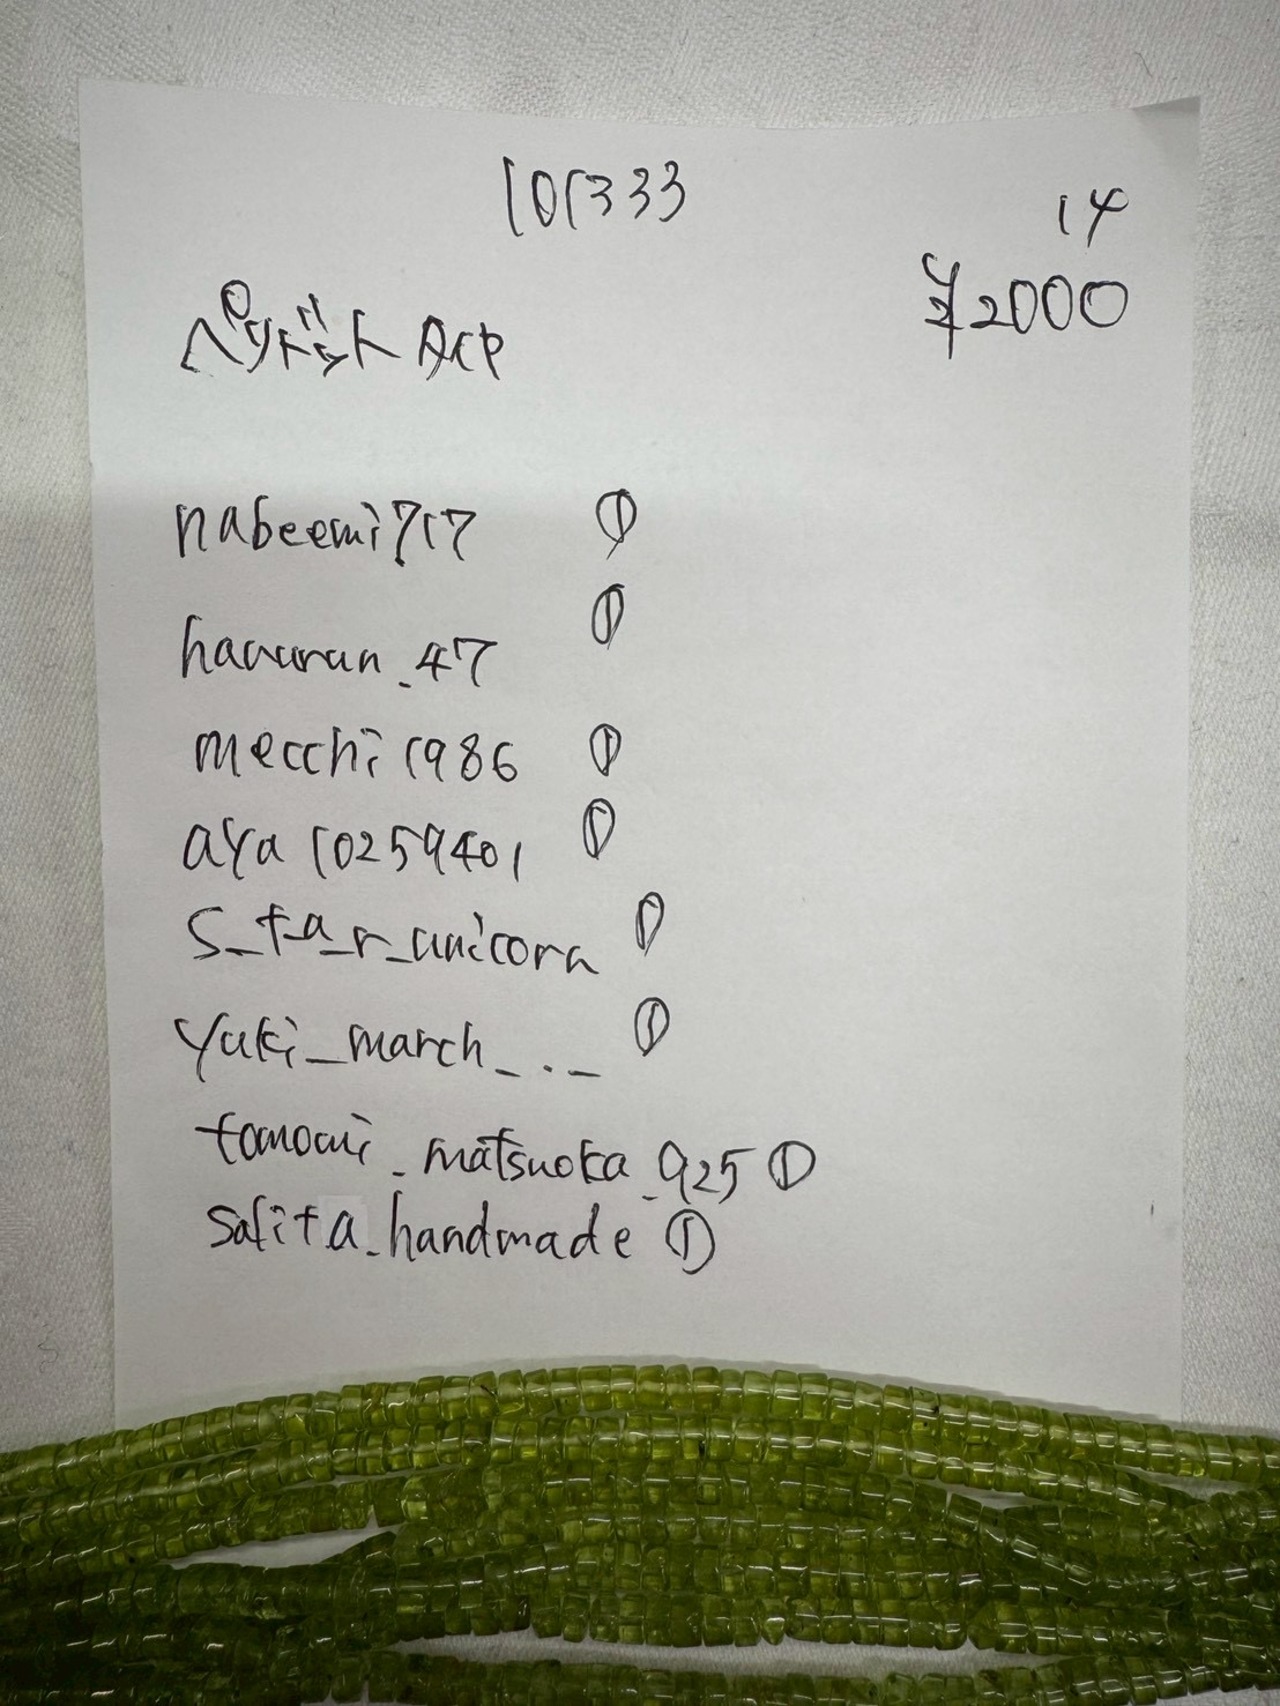 101333
14
¥2000
ペリドット ACP
nabeemi717 ①
haruran_47 ①
mecchi1986 ①
aya10259401 ①
s_t_a_r_unicorn ①
yuki_march_._ ①
tomomi_matsuoka_925 ①
safita_handmade ①